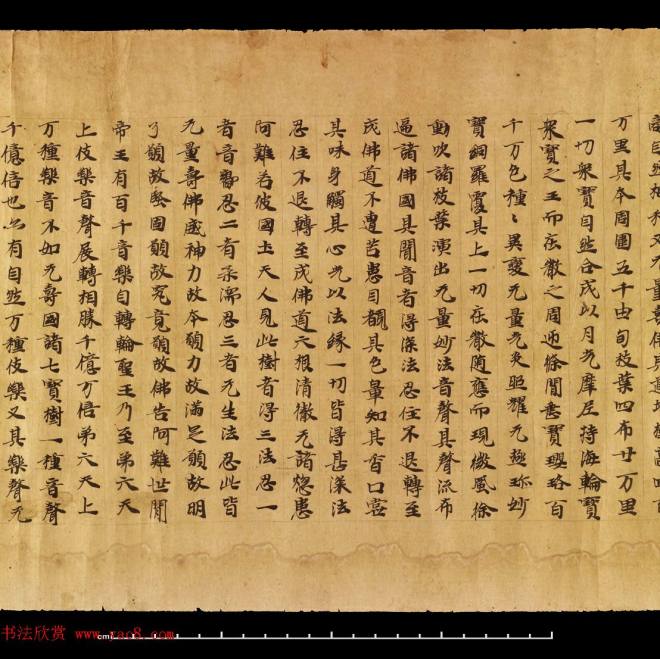 又无量壽佛其道場樹高四百
万里其夲周圍五千由旬枝葉四布廿万里
一切眾寶自然合成以月光摩尼持海輪寶
眾寶之王而莊嚴之周迊條間垂寶瓔珞百
千万色種〻異變无量光炎照耀无極珎妙
寶網羅覆其上一切莊嚴隨應而現微風徐
動吹諸枝葉演出无量妙法音聲其聲派布
遍諸佛國其聞音者得深法忍住不退轉至
成佛道不遭苦患目覩其色鼻知其香口甞
其味身觸其心光以法緣一切皆得甚深法
忍住不退轉至成佛道六根清徹无諸惱患
阿難若彼國土天人見此樹者得三法忍一
者音響忍二者柔濡忍三者无生法忍此皆
无量壽佛威神力故夲願力故滿足願故明
了願故堅固願故究竟願故佛告阿難世間
帝王有百千音樂自轉輪聖王乃至弟六天
上伎樂音聲展轉相勝千億万倍弟六天上
万種樂音不如无壽國諸七寶樹一種音聲
千億倍也亦有自然万種伎樂又其樂聲无
书法欣赏 www.yac8.com
cm